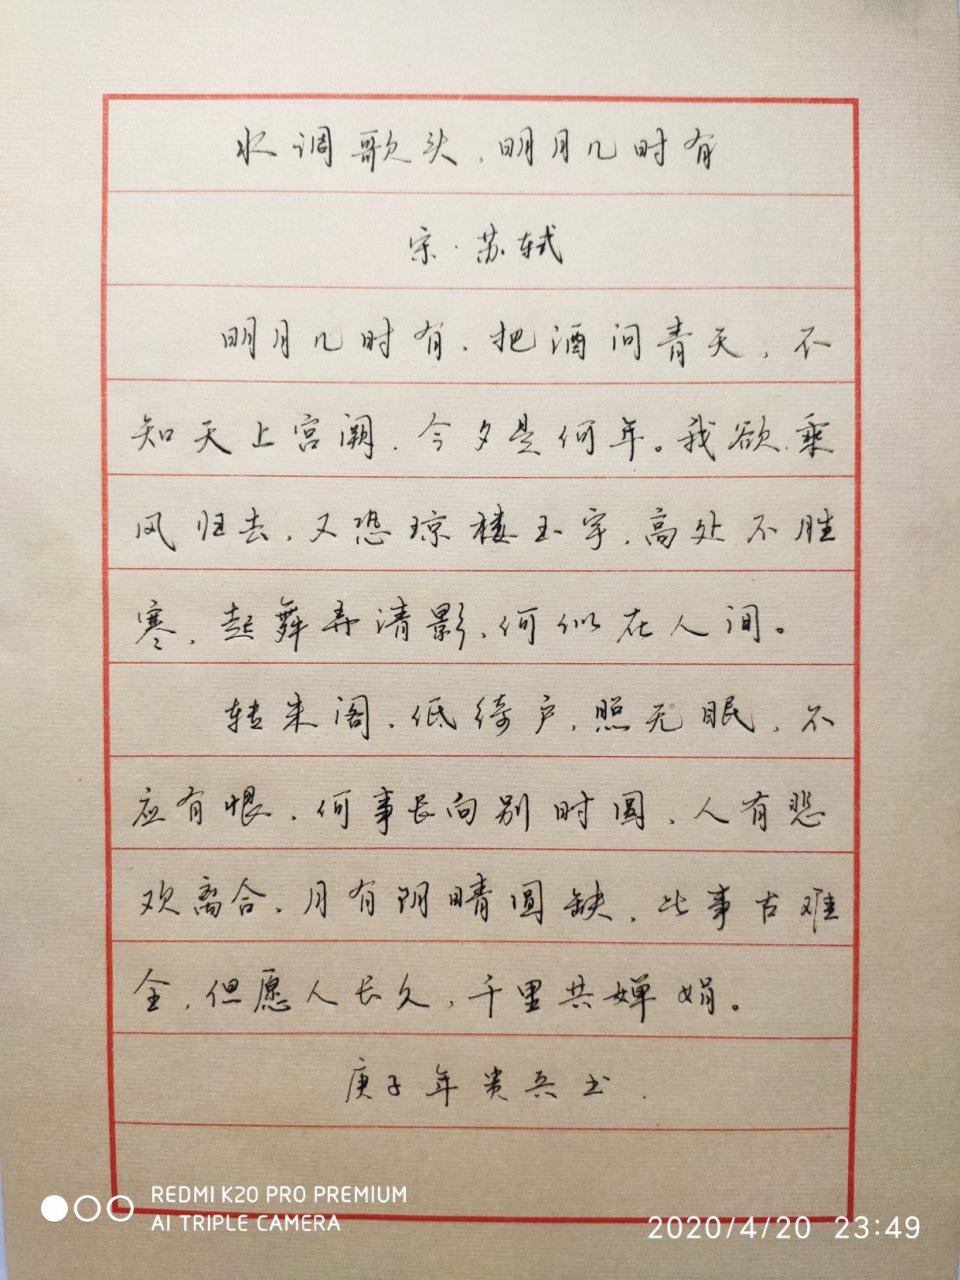 水调歌头，明月几时有
宋·苏轼
明月几时有，把酒问青天，不
知天上宫阙，今夕是何年。我欲乘
风归去，又恐琼楼玉宇，高处不胜
寒，起舞弄清影，何似在人间。
转朱阁，低绮户，照无眠，不
应有恨，何事长向别时圆，人有悲
欢离合，月有阴晴圆缺，此事古难
全，但愿人长久，千里共婵娟。
庚子年贵兵书.
REDMI K20 PRO PREMIUM
AI TRIPLE CAMERA
2020/4/20 23:49